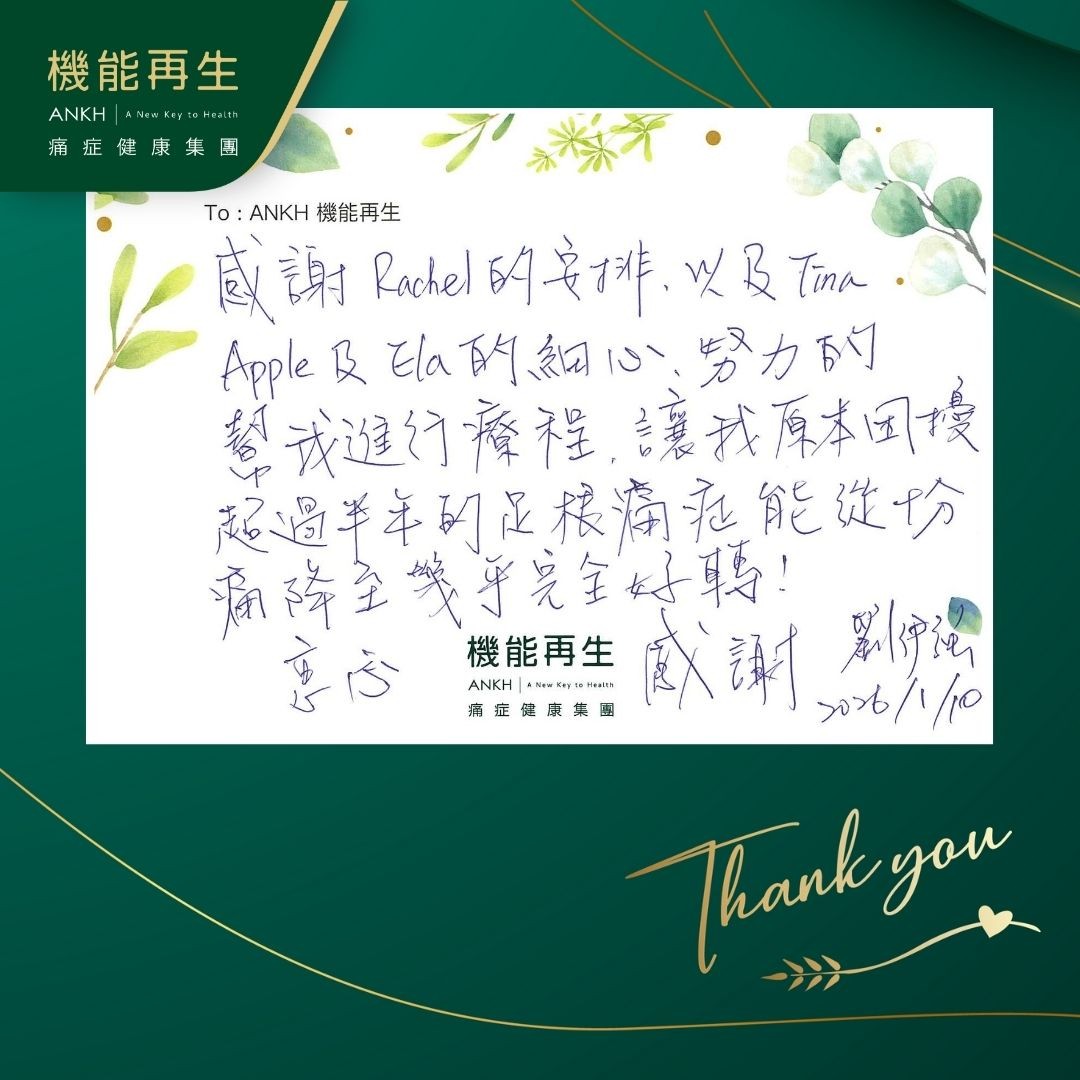 機能再生
ANKH | A New Key to Health
痛症健康集團
To : ANKH 機能再生
感謝 Rachel 的安排、以及 Tina
Apple 及 Ela 的細心、努力的
幫我進行療程，讓我原本困擾
超過半年的足根痛症能從十分
痛降至幾乎完全好轉！
衷心 感謝
劉伊強
2026/1/10
機能再生
ANKH | A New Key to Health
痛症健康集團
Thank you